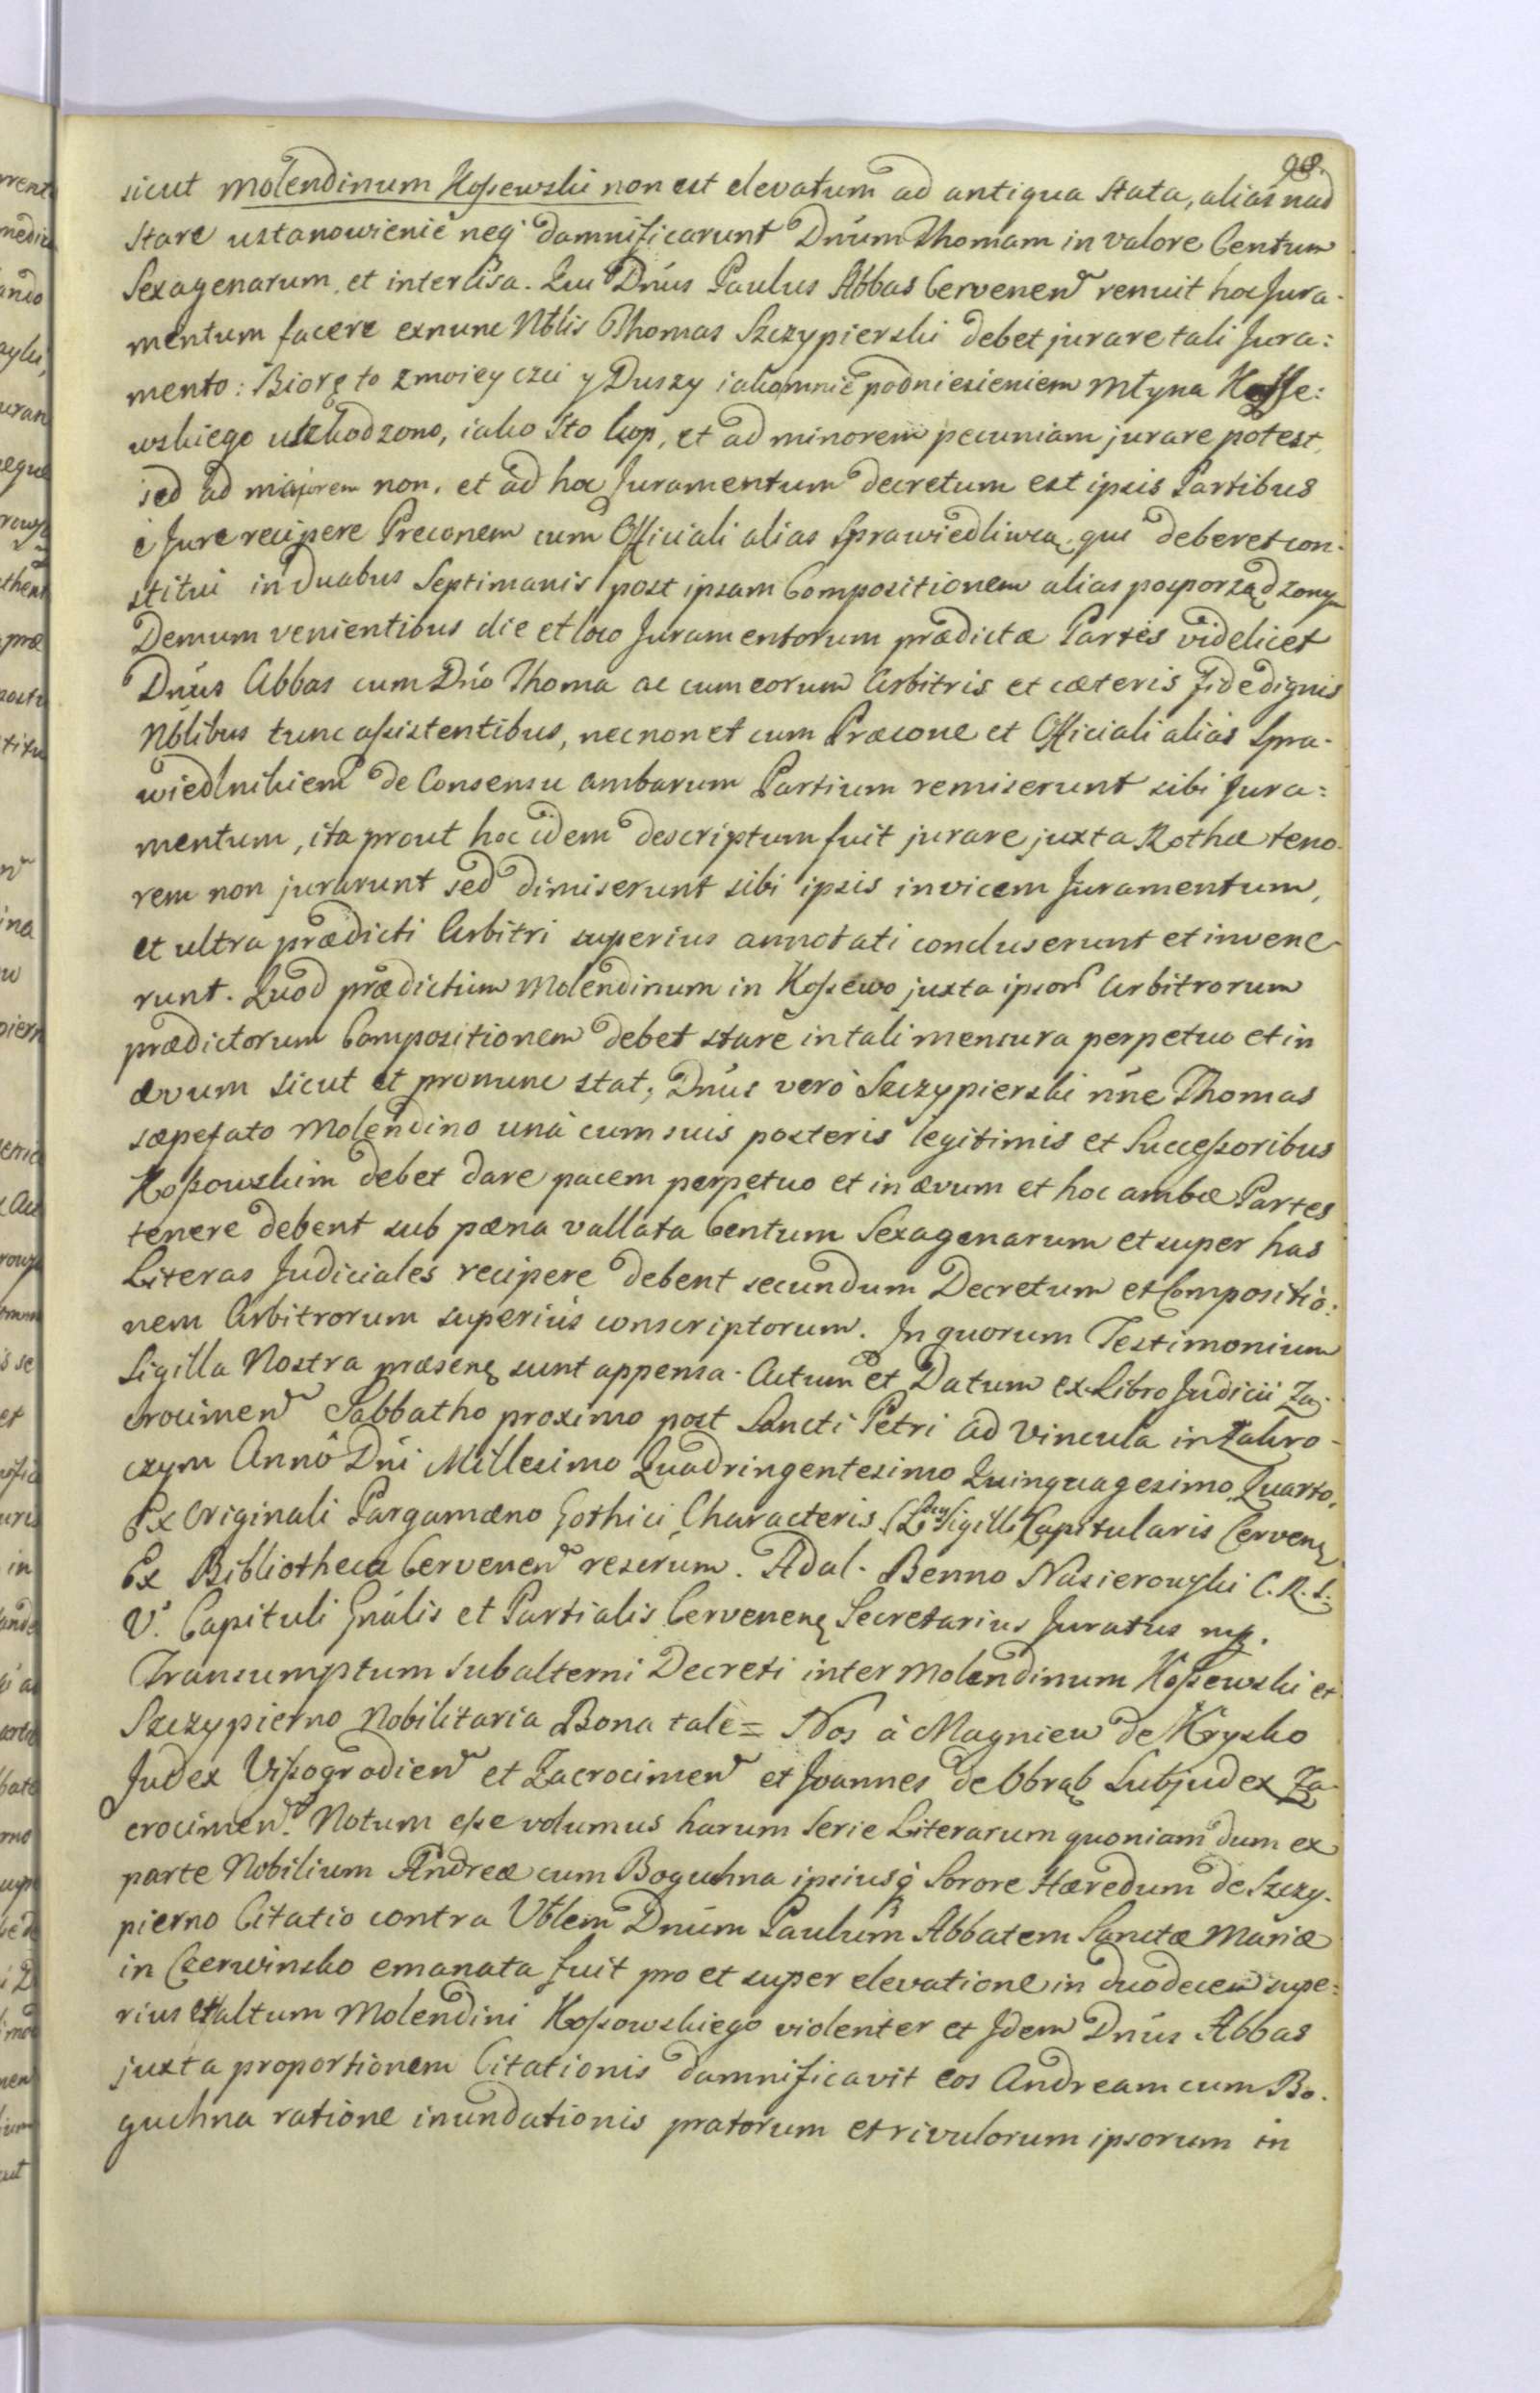 98.
sicut molendinum Koßewski non est elevatum ad antiqua Stata, alias nad
Stare ustanowienie neq̄ damnificarunt Dnūm Thomam in valore Centum
Sexagenarum, et intercisa. Qui Dnūs Paulus Abbas Cervenen̄ renuit hoc Jura-
mentum facere exnunc Nblis Thomas Szczypierski debet jurare tali Jura:
mento: Biorę to z moiey czci y Duszy iako mnie podniesieniem Młyna Kosse:
wskiego uszkodzono, iako Sto kop, et ad minorem pecuniam jurare potest,
sed ad majorem non, et ad hoc Juramentum decretum est ipsis Partibus
è Jure recipere Preconem cum Officiali alias Sprawiedliwcą, qui deberet con-
stitui in duabus Septimanis post ipsam Compositionem alias po sporządzony
Demum venientibus die et loco Juramentorum prædictæ Partes videlicet
Dnūs Abbas cum Dnō Thoma ac cum eorum Arbitris et cæteris fide dignis
Nblibus tunc aßistentibus, necnon et cum Præcone et Officiali alias Spra-
wiedlnikiem de Consensu ambarum Partium remiserunt sibi Jura:
mentum, ita prout hoc idem descriptum fuit jurare juxta Rothæ teno-
rem non jurarunt sed dimiserunt sibi ipsis invicem Juramentum,
et ultra prædicti Arbitri superius annotati concluserunt et invene-
runt. Quod prædictum Molendinum in Koßewo juxta ipsor̄ Arbitrorum
prædictorum Compositionem debet stare in tali mensura perpetuo et in
ævum sicut et pronunc stat, Dnūs verò Szczypierski nn̄e Thomas
sæpefato Molendino unà cum suis posteris legitimis et Succeßoribus
Koßowskim debet dare pacem perpetuo et in ævum et hoc ambæ Partes
tenere debent sub pæna vallata Centum Sexagenarum et super has
Literas Judiciales recipere debent secundum Decretum et Compositio:
nem Arbitrorum superiùs conscriptorum. In quorum Testimonium
Sigilla Nostra præsenę sunt appensa. Actum et Datum ex Libro Judicii Za-
crocimen̄ Sabbatho proximo post Sancti Petri ad Vincula in Zakro-
czym Annô Dnī Millesimo Quadringentesimo Quinquagesimo Quarto,
Ex Originali Pargamæno Gothici Characteris (Locus Sigilli) Capitularis Cervenę
Ex Bibliotheca Cervenen̄ rescrium. Adal. Benno Nasierowski C.R.L.
V. Capituli Gnālis et Partialis Cervenenę Secretarius Juratus mp.
Transumptum subalterni Decreti inter Molendinum Koßewski et
Szczypierno Nobilitaria Bona tale = Nos à Magniew de Krysko
Judex Vißogrodien̄ et Zacrocimen̄ et Joannes de Obrąb Subjudex Za-
crocimen̄. Notum eße volumus harum Serie Literarum quoniam dum ex
parte Nobilium Andreæ cum Boguchna ipsiusq̄ Sorore Hæredum de Szczy-
pierno Citatio contra Vblem Dnūm Paulum Abbatem Sanctæ Mariæ
in Czerwinsko emanata fuit pro et super elevatione in duodecem supe:
rius et altum Molendini Koßowskiego violenter et Idem Dnūs Abbas
juxta proportionem Citationis damnificavit eos Andream cum Bo-
guchna ratione inundationis pratorum et rivulorum ipsorum in